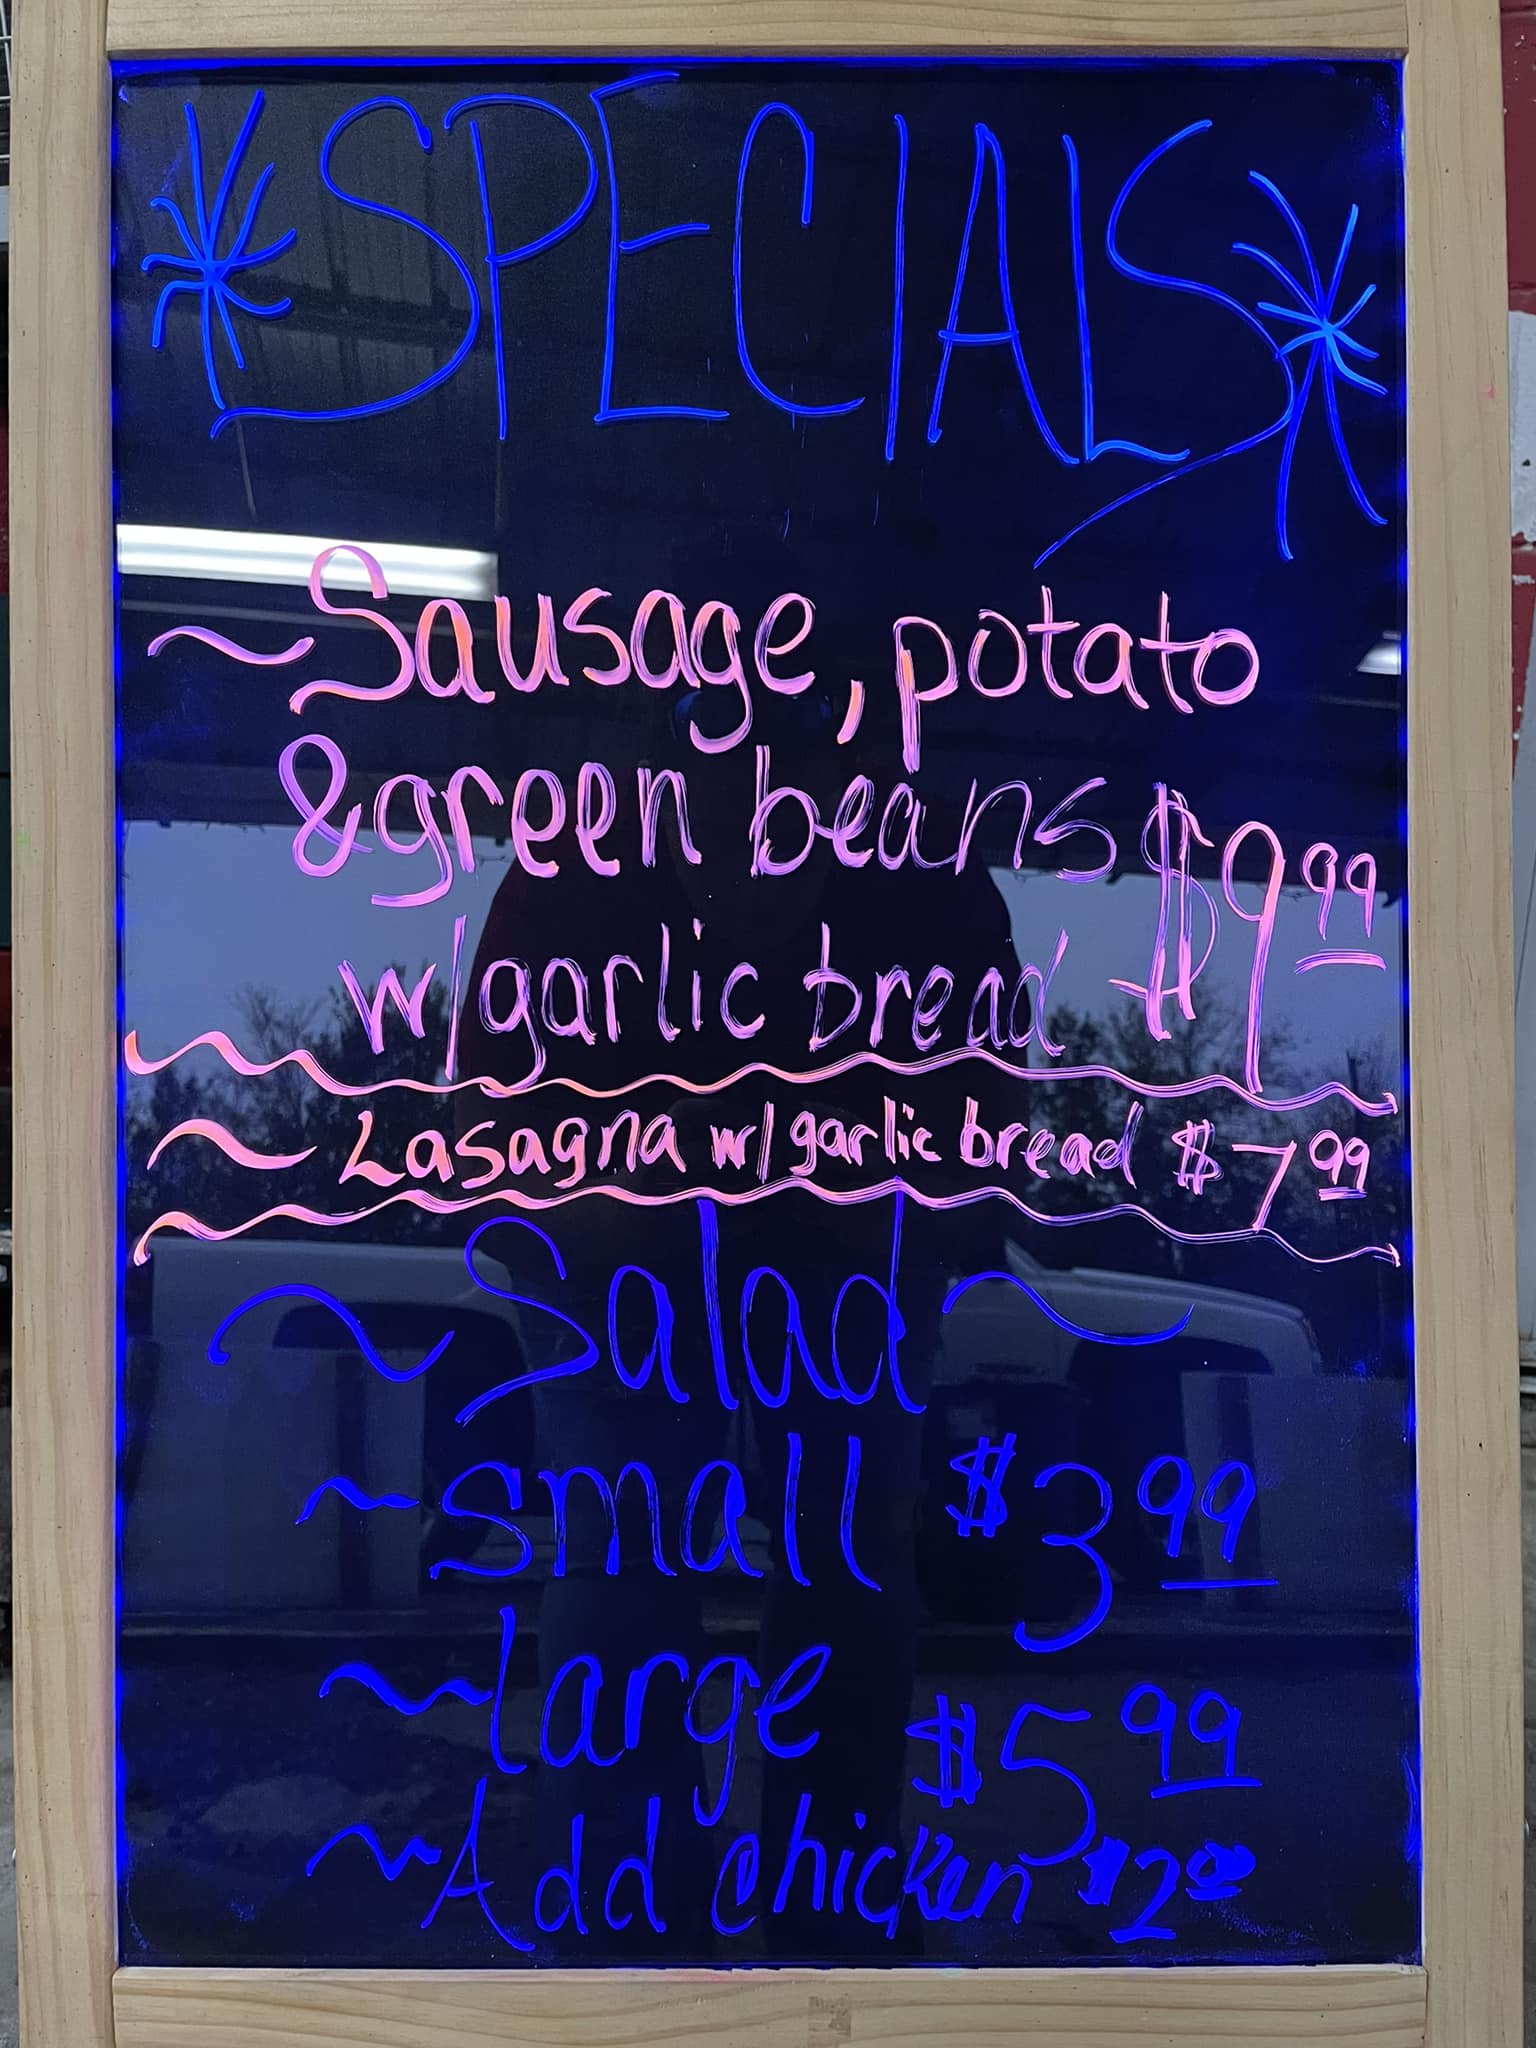 *SPECIALS*
~Sausage, potato
&green beans $9.99
w/garlic bread
~Lasagna w/garlic bread $7.99
~Salad~
~small $3.99
~large $5.99
~Add chicken $2.00